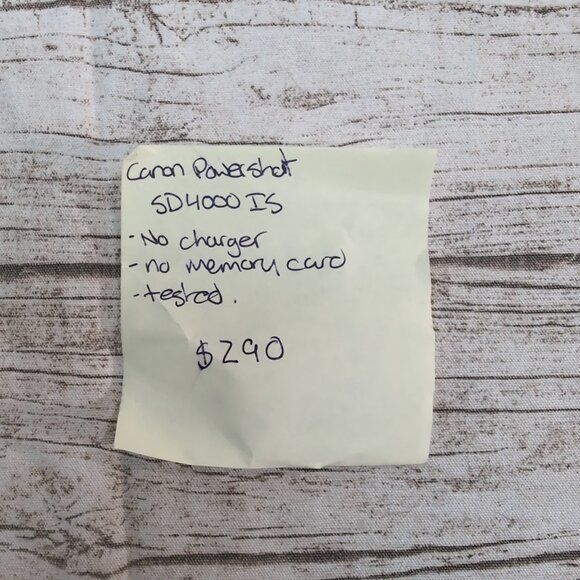 Canon Powershot
SD4000 IS
- No charger
- no memory card
- tested.
$290